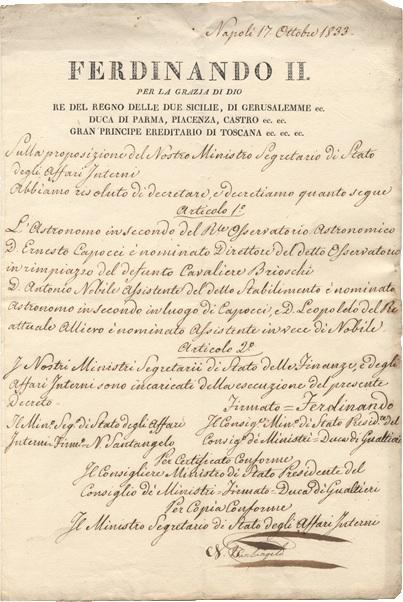 Napoli 17 Ottobre 1833.
FERDINANDO II.
PER LA GRAZIA DI DIO
RE DEL REGNO DELLE DUE SICILIE, DI GERUSALEMME ec.
DUCA DI PARMA, PIACENZA, CASTRO ec. ec.
GRAN PRINCIPE EREDITARIO DI TOSCANA ec. ec. ec.
Sulla proposizione del Nostro Ministro Segretario di Stato
degli Affari Interni
Abbiamo risoluto di decretare, e decretiamo quanto segue
Articolo 1º
L'Astronomo in secondo del Rle Osservatorio Astronomico
D. Ernesto Capocci è nominato Direttore del detto Osservatorio
in rimpiazzo del defunto Cavaliere Brioschi
D. Antonio Nobile Assistente del detto Stabilimento è nominato
Astronomo in secondo in luogo di Capocci, e D. Leopoldo del Re
attuale Allievo è nominato Assistente in vece di Nobile.
Articolo 2º
I Nostri Ministri Segretarii di Stato delle Finanze, e degli
Affari Interni sono incaricati della esecuzione del presente
Decreto.
Firmato = Ferdinando
Il Minº Segº di Stato degli Affari
Interni. Firmº N. Santangelo
Il Consigre Minº di Stato Presidte del
Consigº de' Ministri = Duca di Gualtieri
Per Certificato Conforme
Il Consigliere Ministro di Stato Presidente del
Consiglio de' Ministri = Firmato = Duca di Gualtieri
Per Copia Conforme
Il Ministro Segretario di Stato degli Affari Interni
N. Santangelo